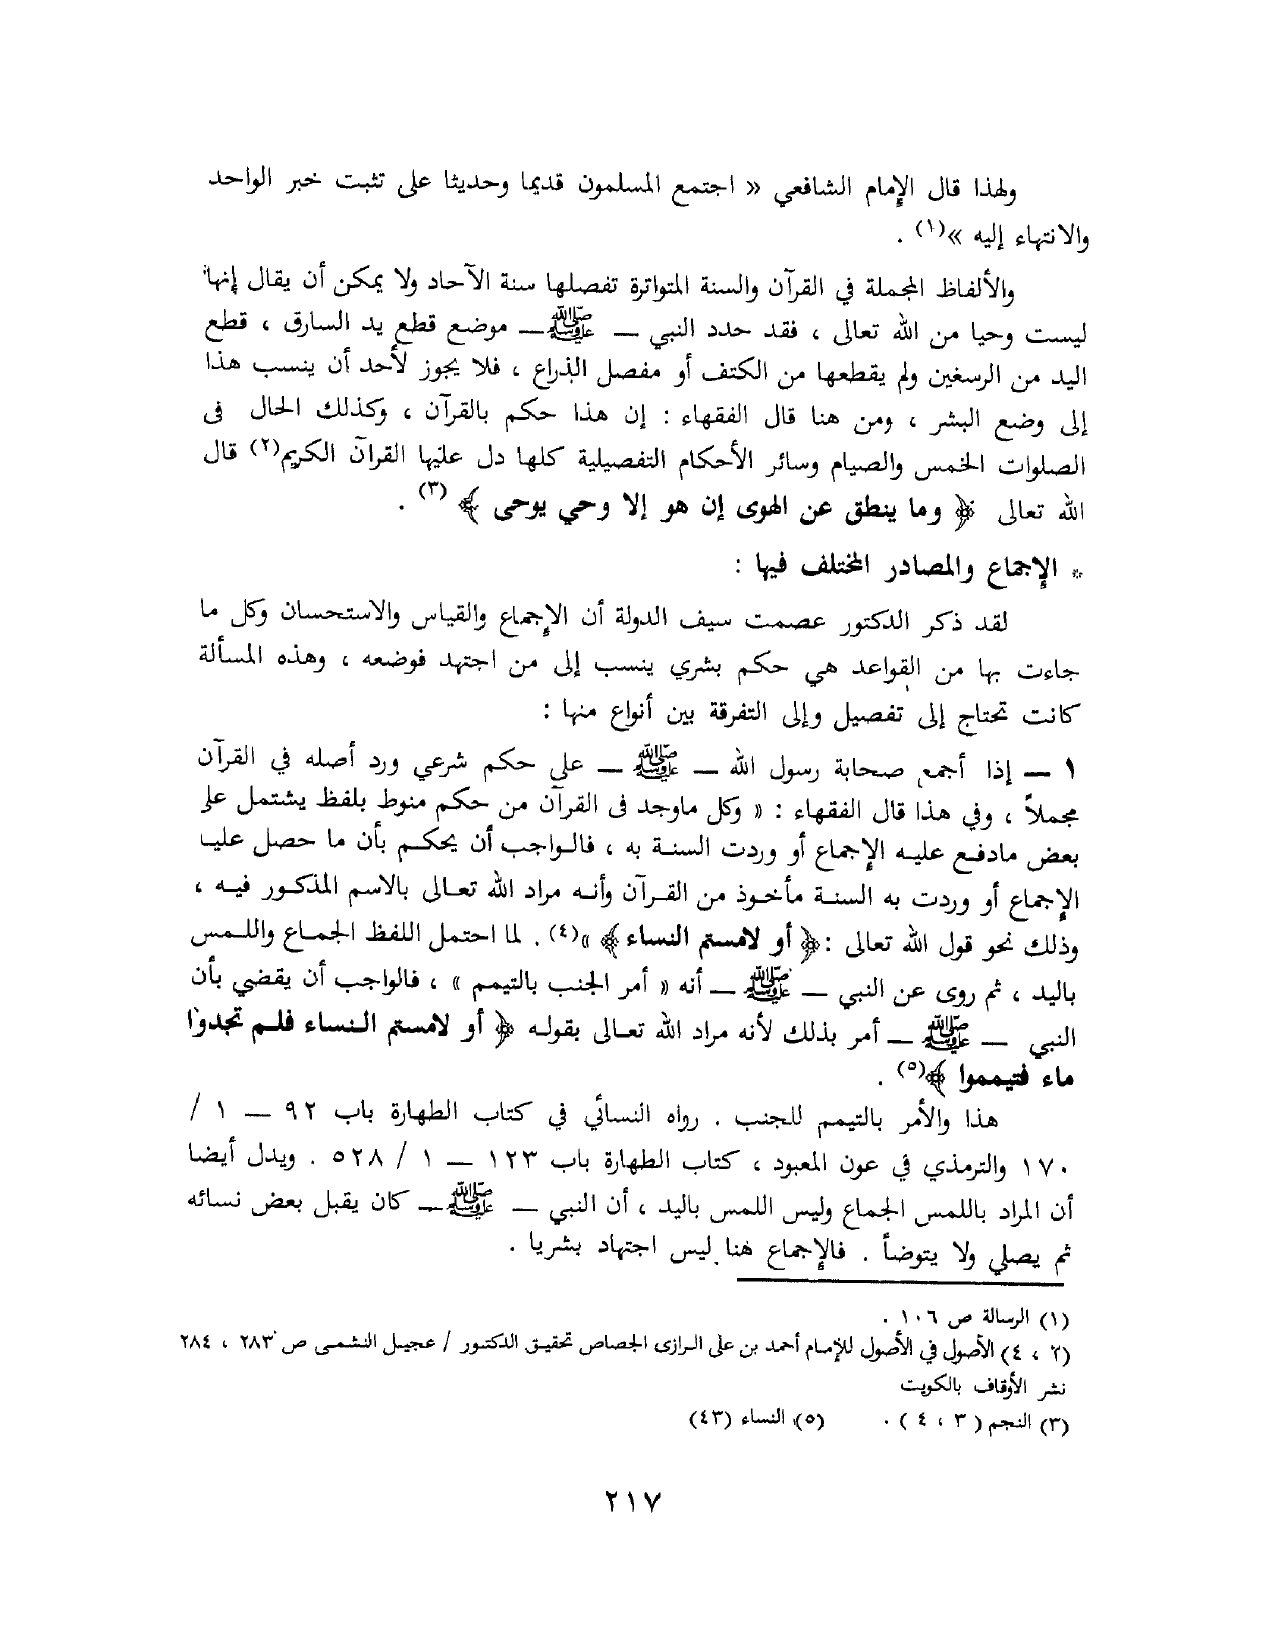 ولهذا قال الإمام الشافعي « اجتمع المسلمون قديما وحديثا على تثبت خبر الواحد
والانتهاء إليه »(١) .
والألفاظ المجملة في القرآن والسنة المتواترة تفصلها سنة الآحاد ولا يمكن أن يقال إنها
ليست وحيا من الله تعالى ، فقد حدد النبي — ﷺ — موضع قطع يد السارق ، قطع
اليد من الرسغين ولم يقطعها من الكتف أو مفصل الذراع ، فلا يجوز لأحد أن ينسب هذا
إلى وضع البشر ، ومن هنا قال الفقهاء : إن هذا حكم بالقرآن ، وكذلك الحال فى
الصلوات الخمس والصيام وسائر الأحكام التفصيلية كلها دل عليها القرآن الكريم(٢) قال
الله تعالى ﴿ وما ينطق عن الهوى إن هو إلا وحي يوحى ﴾ (٣) .
* الإجماع والمصادر المختلف فيها :
لقد ذكر الدكتور عصمت سيف الدولة أن الإجماع والقياس والاستحسان وكل ما
جاءت بها من القواعد هي حكم بشري ينسب إلى من اجتهد فوضعه ، وهذه المسألة
كانت تحتاج إلى تفصيل وإلى التفرقة بين أنواع منها :
١ — إذا أجمع صحابة رسول الله — ﷺ — على حكم شرعي ورد أصله في القرآن
مجملاً ، وفي هذا قال الفقهاء : « وكل ماوجد فى القرآن من حكم منوط بلفظ يشتمل على
بعض مادفع عليه الإجماع أو وردت السنة به ، فالواجب أن يحكم بأن ما حصل عليه
الإجماع أو وردت به السنة مأخوذ من القرآن وأنه مراد الله تعالى بالاسم المذكور فيه ،
وذلك نحو قول الله تعالى :﴿ أو لامستم النساء ﴾ »(٤) . لما احتمل اللفظ الجماع واللمس
باليد ، ثم روى عن النبي — ﷺ — أنه « أمر الجنب بالتيمم » ، فالواجب أن يقضي بأن
النبي — ﷺ — أمر بذلك لأنه مراد الله تعالى بقوله ﴿ أو لامستم النساء فلم تجدوا
ماء فتيمموا ﴾(٥) .
هذا والأمر بالتيمم للجنب . رواه النسائي في كتاب الطهارة باب ٩٢ — ١ /
١٧٠ والترمذي في عون المعبود ، كتاب الطهارة باب ١٢٣ — ١ / ٥٢٨ . ويدل أيضا
أن المراد باللمس الجماع وليس اللمس باليد ، أن النبي — ﷺ — كان يقبل بعض نسائه
ثم يصلي ولا يتوضأ . فالإجماع هنا ليس اجتهاد بشريا .
(١) الرسالة ص ١٠٦ .
(٢ ، ٤) الأصول في الأصول للإمام أحمد بن على الرازى الجصاص تحقيق الدكتور / عجيل النشمى ص ٢٨٣ ، ٢٨٤
نشر الأوقاف بالكويت
(٣) النجم ( ٣ ، ٤ ) . (٥) النساء (٤٣)
٢١٧